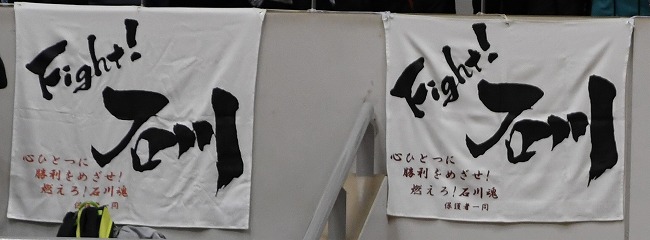 Fight!
石川
心ひとつに
勝利をめざせ!
燃えろ!石川魂
保護者一同
Fight!
石川
心ひとつに
勝利をめざせ!
燃えろ!石川魂
保護者一同